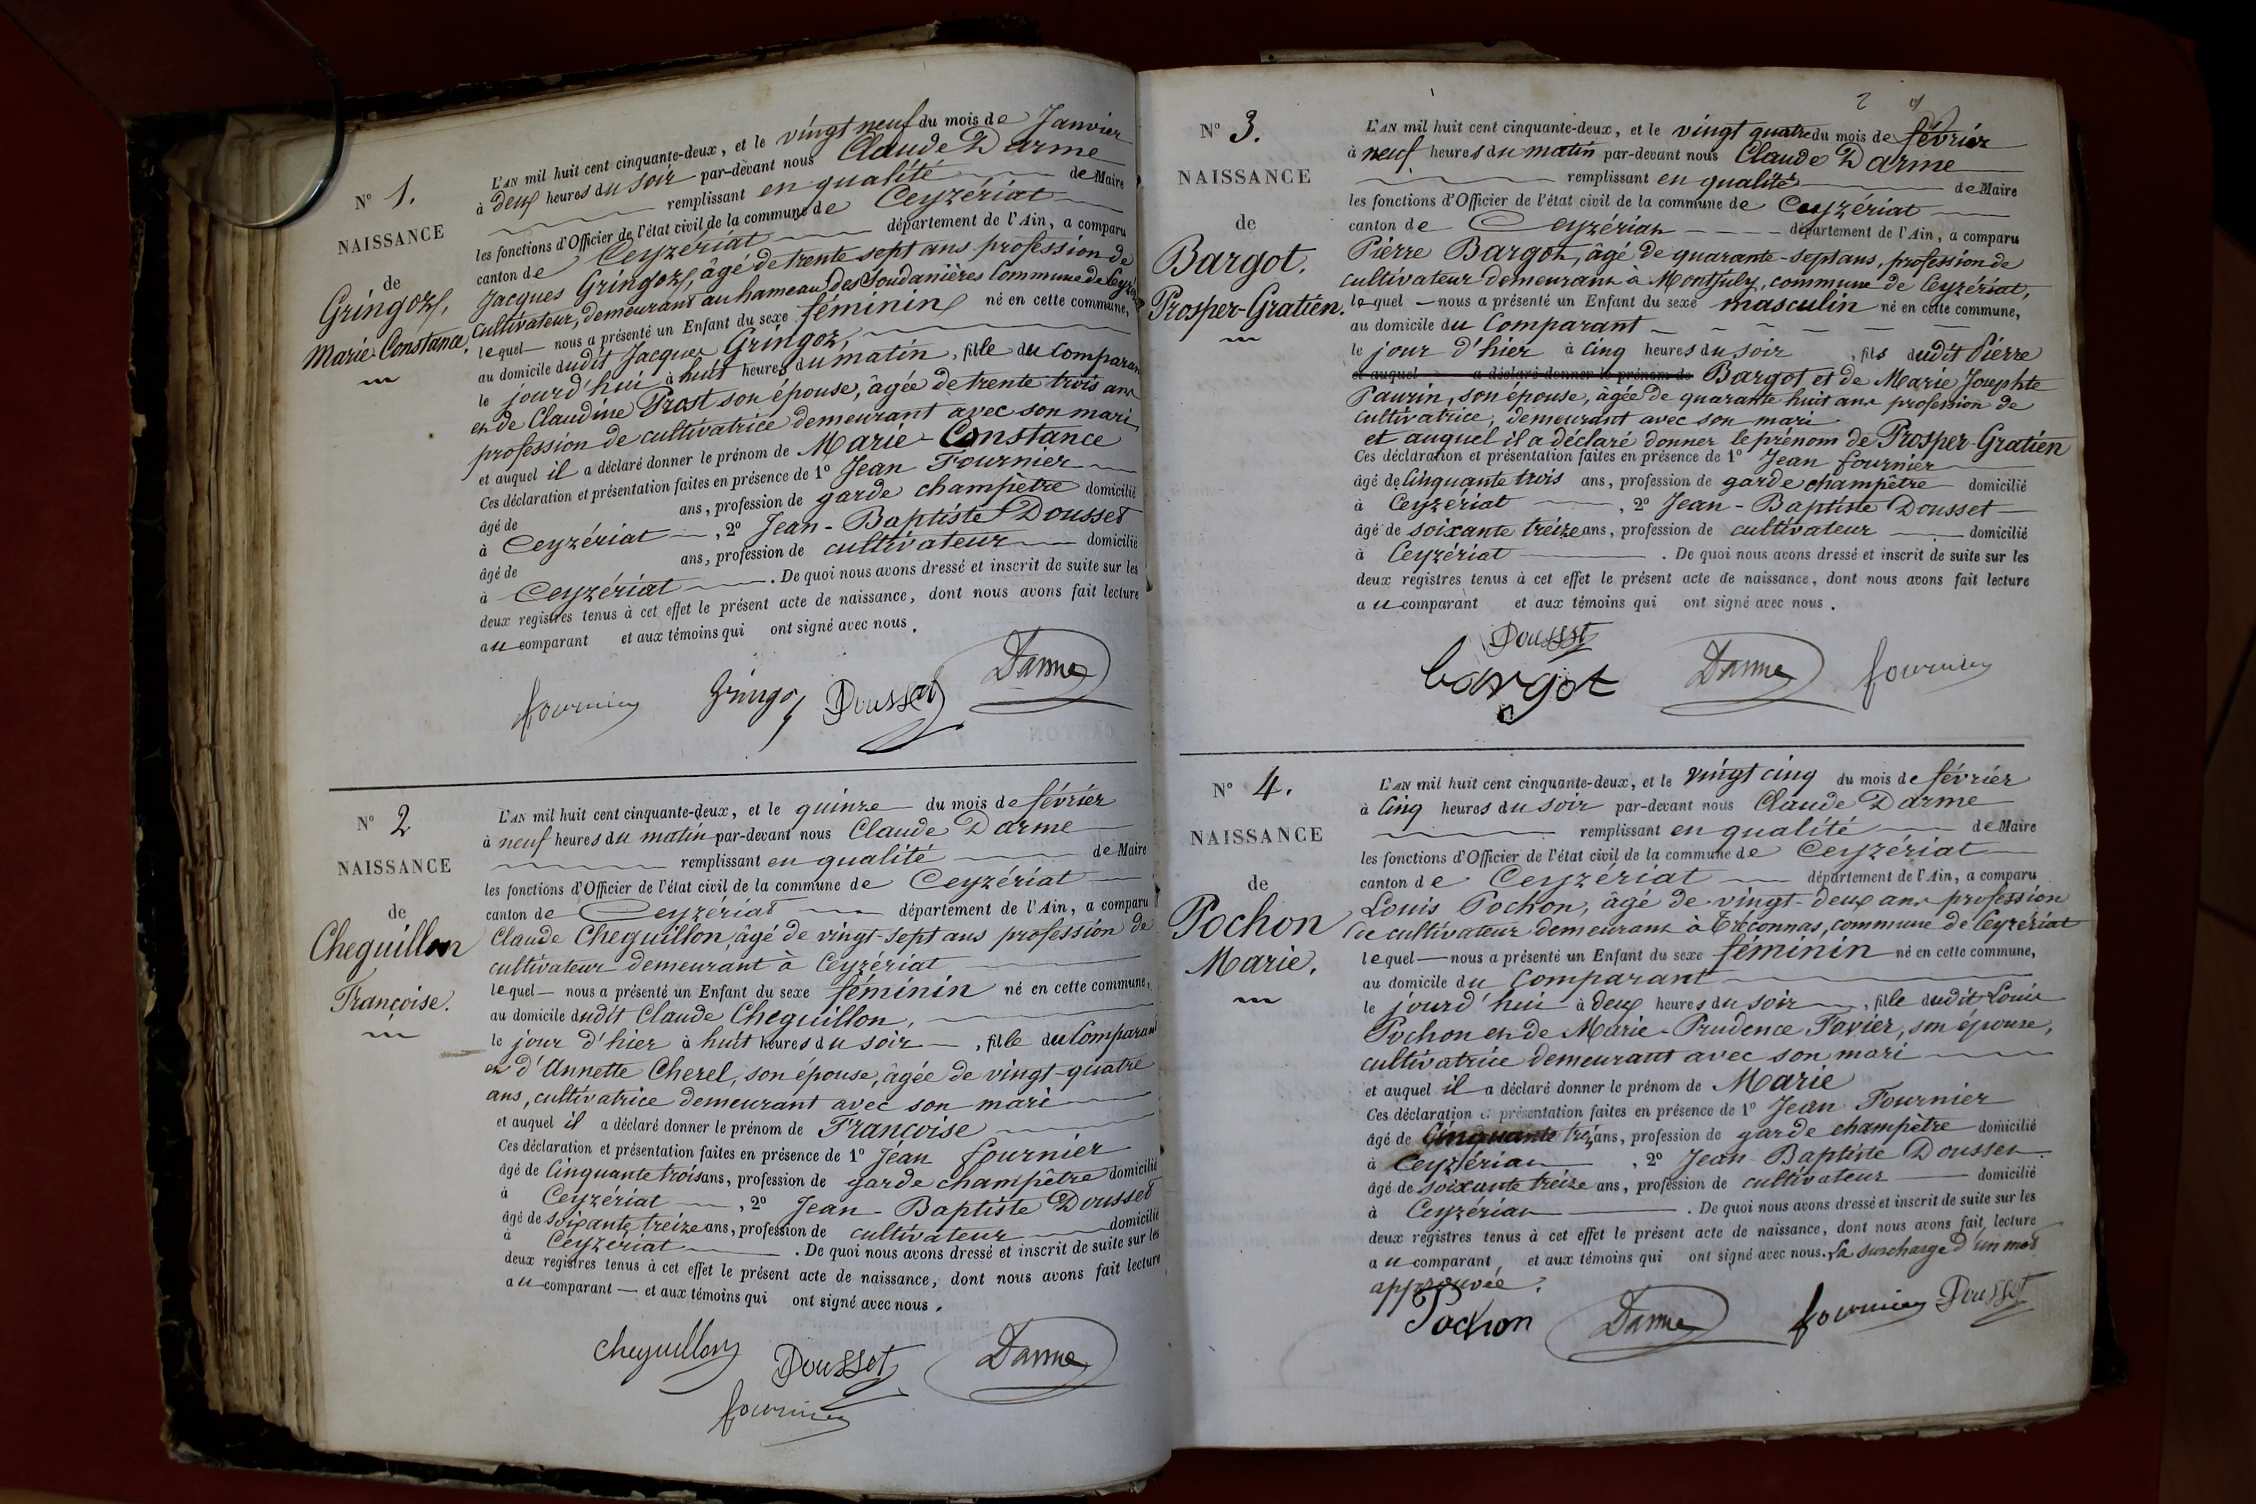 N° 1.
NAISSANCE
de
Gringoz,
Marie-Constance.
L'AN mil huit cent cinquante-deux, et le vingt neuf du mois de Janvier
à deux heures du soir par-devant nous Claude Darme
remplissant en qualité de Maire
les fonctions d'Officier de l'état civil de la commune de Ceyzériat
canton de Ceyzériat département de l'Ain, a comparu
Jacques Gringoz, âgé de trente sept ans profession de
cultivateur, demeurant au hameau des Soudanières Commune de
lequel nous a présenté un Enfant du sexe féminin né en cette commune,
au domicile dudit Jacques Gringoz,
le jourd'hui à huit heures du matin, fille du Comparant
et de Claudine Prost son épouse, âgée de trente trois ans
profession de cultivatrice demeurant avec son mari
et auquel il a déclaré donner le prénom de Marie-Constance
Ces déclaration et présentation faites en présence de 1° Jean Fournier
âgé de ans, profession de garde champêtre domicilié
à Ceyzériat, 2° Jean-Baptiste Dousset
âgé de ans, profession de cultivateur domicilié
à Ceyzériat. De quoi nous avons dressé et inscrit de suite sur les
deux registres tenus à cet effet le présent acte de naissance, dont nous avons fait lecture
au comparant et aux témoins qui ont signé avec nous.
fournier Gringoz Dousset Darme
N° 2
NAISSANCE
de
Cheguillon
Françoise.
L'AN mil huit cent cinquante-deux, et le quinze du mois de février
à neuf heures du matin par-devant nous Claude Darme
remplissant en qualité de Maire
les fonctions d'Officier de l'état civil de la commune de Ceyzériat
canton de Ceyzériat département de l'Ain, a comparu
Claude Cheguillon, âgé de vingt-sept ans profession de
cultivateur demeurant à Ceyzériat
lequel nous a présenté un Enfant du sexe féminin né en cette commune,
au domicile dudit Claude Cheguillon,
le jour d'hier à huit heures du soir, fille du Comparant
et d'Annette Cherel, son épouse, âgée de vingt-quatre
ans, cultivatrice demeurant avec son mari
et auquel il a déclaré donner le prénom de Françoise
Ces déclaration et présentation faites en présence de 1° Jean fournier
âgé de Cinquante trois ans, profession de garde champêtre domicilié
à Ceyzériat, 2° Jean-Baptiste Dousset
âgé de soixante treize ans, profession de cultivateur domicilié
à Ceyzériat. De quoi nous avons dressé et inscrit de suite sur les
deux registres tenus à cet effet le présent acte de naissance, dont nous avons fait lecture
au comparant et aux témoins qui ont signé avec nous.
Cheguillon Dousset Darme
fournier
2
N° 3.
NAISSANCE
de
Bargot.
Prosper-Gratien.
L'AN mil huit cent cinquante-deux, et le vingt quatre du mois de février
à neuf heures du matin par-devant nous Claude Darme
remplissant en qualité de Maire
les fonctions d'Officier de l'état civil de la commune de Ceyzériat
canton de Ceyzériat département de l'Ain, a comparu
Pierre Bargot, âgé de quarante-sept ans, profession de
cultivateur demeurant à Montjuly, commune de Ceyzériat,
lequel nous a présenté un Enfant du sexe masculin né en cette commune,
au domicile du Comparant
le jour d'hier à cinq heures du soir, fils dudit Pierre
et auquel a déclaré donner le prénom de Bargot et de Marie Josephte
Paurin, son épouse, âgée de quarante huit ans profession de
cultivatrice, demeurant avec son mari
et auquel il a déclaré donner le prénom de Prosper-Gratien
Ces déclaration et présentation faites en présence de 1° Jean fournier
âgé de Cinquante trois ans, profession de garde champêtre domicilié
à Ceyzériat, 2° Jean-Baptiste Dousset
âgé de soixante treize ans, profession de cultivateur domicilié
à Ceyzériat. De quoi nous avons dressé et inscrit de suite sur les
deux registres tenus à cet effet le présent acte de naissance, dont nous avons fait lecture
au comparant et aux témoins qui ont signé avec nous.
Dousset
bargot Darme fournier
N° 4.
NAISSANCE
de
Pochon
Marie.
L'AN mil huit cent cinquante-deux, et le vingt cinq du mois de février
à Cinq heures du soir par-devant nous Claude Darme
remplissant en qualité de Maire
les fonctions d'Officier de l'état civil de la commune de Ceyzériat
canton de Ceyzériat département de l'Ain, a comparu
Louis Pochon, âgé de vingt-deux ans profession
de cultivateur demeurant à Tréconnas, commune de Ceyzériat
lequel nous a présenté un Enfant du sexe féminin né en cette commune,
au domicile du Comparant
le jourd'hui à deux heures du soir, fille dudit Louis
Pochon et de Marie-Prudence Favier, son épouse,
cultivatrice demeurant avec son mari
et auquel il a déclaré donner le prénom de Marie
Ces déclaration et présentation faites en présence de 1° Jean Fournier
âgé de Cinquante trois ans, profession de garde champêtre domicilié
à Ceyzériat, 2° Jean Baptiste Dousset
âgé de soixante treize ans, profession de cultivateur domicilié
à Ceyzériat. De quoi nous avons dressé et inscrit de suite sur les
deux registres tenus à cet effet le présent acte de naissance, dont nous avons fait lecture
au comparant, et aux témoins qui ont signé avec nous. La surcharge d'un mot
approuvée.
Pochon Darme fournier Dousset